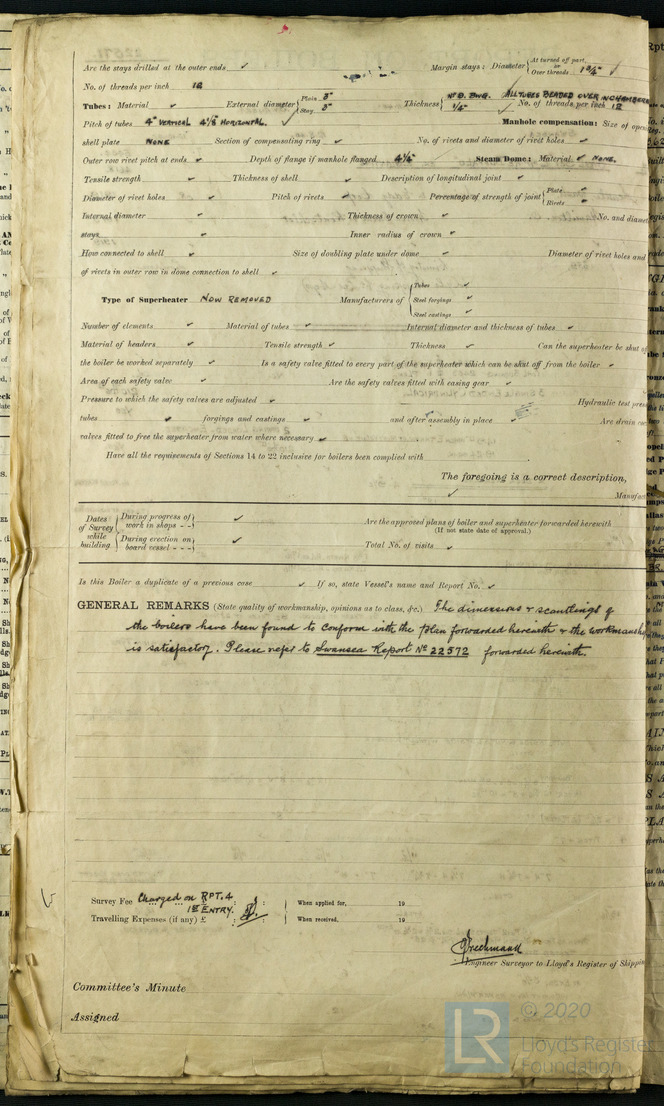 Are the stays drilled at the outer ends ✓ Margin stays: Diameter { At turned off part, or Over threads 1 3/4" ✓
No. of threads per inch 12
Tubes: Material ✓ External diameter { Plain 3" Stay 3" Thickness { Nº 8. BWG. 1/4" ALL TUBES BEADED OVER IN CHAMBERS ✓ No. of threads per inch 12
Pitch of tubes 4" VERTICAL 4 1/8" HORIZONTAL. ✓ Manhole compensation: Size of open
shell plate NONE Section of compensating ring ✓ No. of rivets and diameter of rivet holes ✓
Outer row rivet pitch at ends ✓ Depth of flange if manhole flanged 4 1/2" ✓ Steam Dome: Material ✓ NONE.
Tensile strength ✓ Thickness of shell ✓ Description of longitudinal joint ✓
Diameter of rivet holes ✓ Pitch of rivets ✓ Percentage of strength of joint { Plate ✓ Rivets ✓
Internal diameter ✓ Thickness of crown ✓ No. and diamet
stays ✓ Inner radius of crown ✓
How connected to shell ✓ Size of doubling plate under dome ✓ Diameter of rivet holes and
of rivets in outer row in dome connection to shell ✓
Type of Superheater NOW REMOVED Manufacturers of { Tubes ✓ Steel forgings ✓ Steel castings ✓
Number of elements ✓ Material of tubes ✓ Internal diameter and thickness of tubes ✓
Material of headers ✓ Tensile strength ✓ Thickness ✓ Can the superheater be shut of
the boiler be worked separately ✓ Is a safety valve fitted to every part of the superheater which can be shut off from the boiler ✓
Area of each safety valve ✓ Are the safety valves fitted with easing gear ✓
Pressure to which the safety valves are adjusted ✓ Hydraulic test pres
tubes ✓ forgings and castings ✓ and after assembly in place ✓ Are drain coc
valves fitted to free the superheater from water where necessary ✓
Have all the requirements of Sections 14 to 22 inclusive for boilers been complied with
The foregoing is a correct description,
✓ Manufac
Dates of Survey while building { During progress of work in shops - - } ✓ Are the approved plans of boiler and superheater forwarded herewith (If not state date of approval.)
{ During erection on board vessel - - - } ✓ Total No. of visits ✓
Is this Boiler a duplicate of a previous case ✓ If so, state Vessel's name and Report No. ✓
GENERAL REMARKS (State quality of workmanship, opinions as to class, &c.) The dimensions & scantlings of
the boilers have been found to conform with the plan forwarded herewith & the workmanship
is satisfactory. Please refer to Swansea Report Nº 22572 forwarded herewith.
Survey Fee Charged on RPT. 4 1st ENTRY. : : When applied for, 19
Travelling Expenses (if any) £ : : When received, 19
Engineer Surveyor to Lloyd's Register of Shippin
Committee's Minute
Assigned
LR © 2020
Lloyd's Register
Foundation